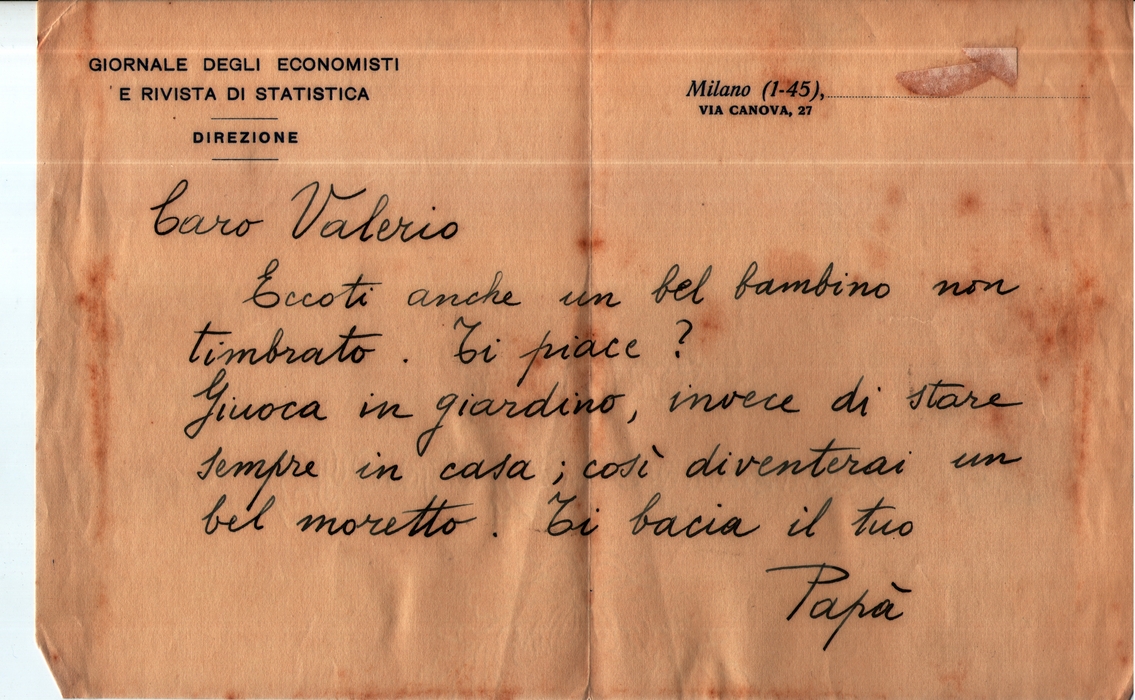 GIORNALE DEGLI ECONOMISTI
E RIVISTA DI STATISTICA
DIREZIONE
Milano (1-45),
VIA CANOVA, 27
Caro Valerio
Eccoti anche un bel bambino non
timbrato. Ti piace?
Giuoca in giardino, invece di stare
sempre in casa; così diventerai un
bel moretto. Ti bacia il tuo
Papà